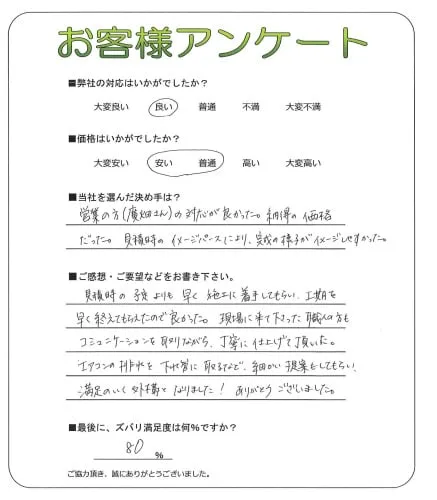 お客様アンケート
■弊社の対応はいかがでしたか?
大変良い 良い 普通 不満 大変不満
■価格はいかがでしたか?
大変安い 安い 普通 高い 大変高い
■当社を選んだ決め手は?
営業の方(廣畑さん)の対応が良かった。納得の価格
だった。見積時のイメージパースにより、完成の様子がイメージしやすかった。
■ご感想・ご要望などをお書き下さい。
見積時の予定よりも早く施工に着手してもらい、工期を
早く終えてもらえたので良かった。現場に来て下さった職人の方も
コミュニケーションを取りながら、丁寧に仕上げて頂いた。
エアコンの排水を下水管に取るなど、細かい提案もしてもらい
満足のいく外構となりました!ありがとうございました。
■最後に、ズバリ満足度は何%ですか?
80 %
ご協力頂き、誠にありがとうございました。